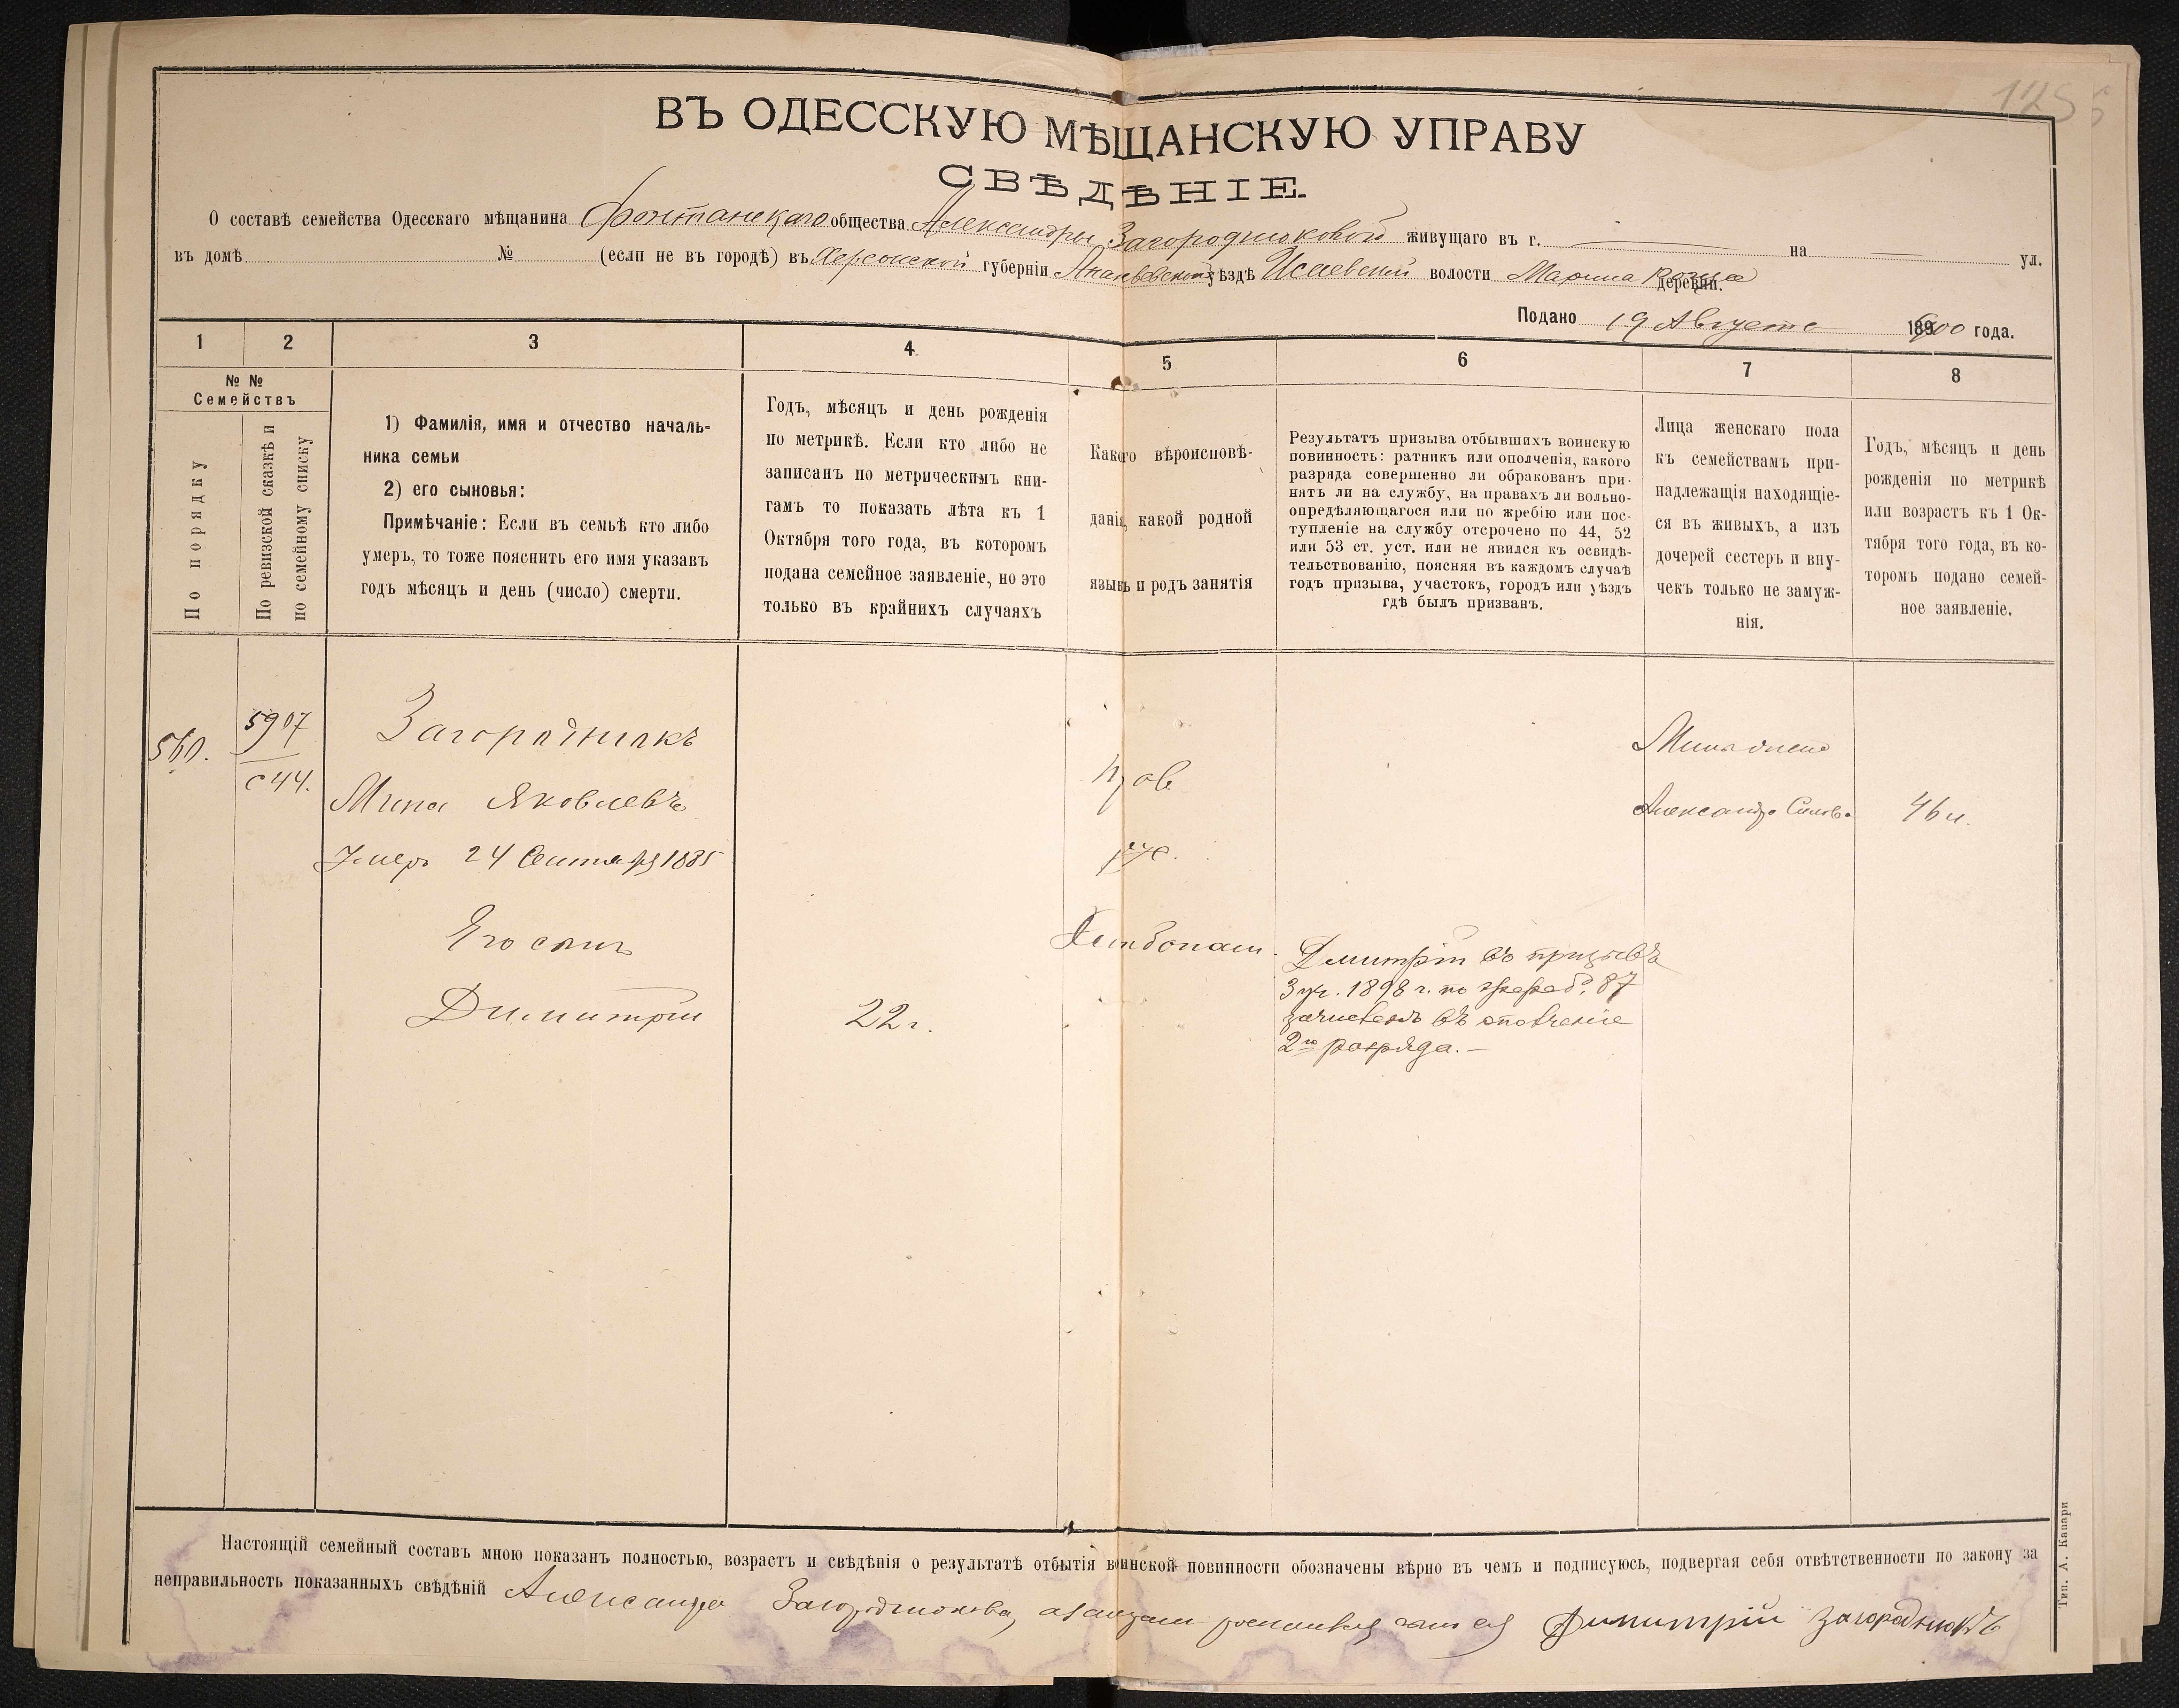 125
ВЪ ОДЕССКУЮ МѢЩАНСКУЮ УПРАВУ
СВѢДѢНІЕ.
О составѣ семейства Одесскаго мѣщанина Фонтанскаго общества Александры Загороднюковой живущаго въ г. — на — ул.
въ домѣ № (если не въ городѣ) въ Херсонской губерніи Ананьевскомъ уѣздѣ Исаевской волости Марина Роща деревни.
Подано 19 Августа 1900 года.
1 2 3 4 5 6 7 8
№ №
Семействъ
По порядку
По ревизской сказкѣ и
по семейному списку
1) Фамилія, имя и отчество началь-
ника семьи
2) его сыновья:
Примѣчаніе: Если въ семьѣ кто либо
умеръ, то тоже пояснить его имя указавъ
годъ мѣсяцъ и день (число) смерти.
Годъ, мѣсяцъ и день рожденія
по метрикѣ. Если кто либо не
записанъ по метрическимъ кни-
гамъ то показать лѣта къ 1
Октября того года, въ которомъ
подана семейное заявленіе, но это
только въ крайнихъ случаяхъ
Какого вѣроисповѣ-
данія, какой родной
языкъ и родъ занятія
Результатъ призыва отбывшихъ воинскую
повинность: ратникъ или ополченія, какого
разряда совершенно ли обракованъ при-
нятъ ли на службу, на правахъ ли вольно-
опредѣляющагося или по жребію или пос-
тупленіе на службу отсрочено по 44, 52
или 53 ст. уст. или не явился къ освидѣ-
тельствованію, поясняя въ каждомъ случаѣ
годъ призыва, участокъ, городъ или уѣздъ
гдѣ былъ призванъ.
Лица женскаго пола
къ семействамъ при-
надлежащія находящіе-
ся въ живыхъ, а изъ
дочерей сестеръ и вну-
чекъ только не замуж-
нія.
Годъ, мѣсяцъ и день
рожденія по метрикѣ
или возрастъ къ 1 Ок-
тября того года, въ ко-
торомъ подано семей-
ное заявленіе.
560.
5907
с 44.
Загороднюкъ
Мина Яковлевъ
Умеръ 24 Сентября 1885
Его сынъ
Димитрій
22 г.
прав
рус.
Хлѣбопаш.
Дмитрій въ призывѣ
3 уч. 1898 г. по жребію 87
зачисленъ въ ополченіе
2го разряда. —
Мины жена
Александра Силова
46 л.
Настоящій семейный составъ мною показанъ полностью, возрастъ и свѣдѣнія о результатѣ отбытія воинской повинности обозначены вѣрно въ чемъ и подписуюсь, подвергая себя отвѣтственности по закону за
неправильность показанныхъ свѣдѣній Александра Загороднюкова, Димитрій Загороднюкъ
Тип. А. Капари